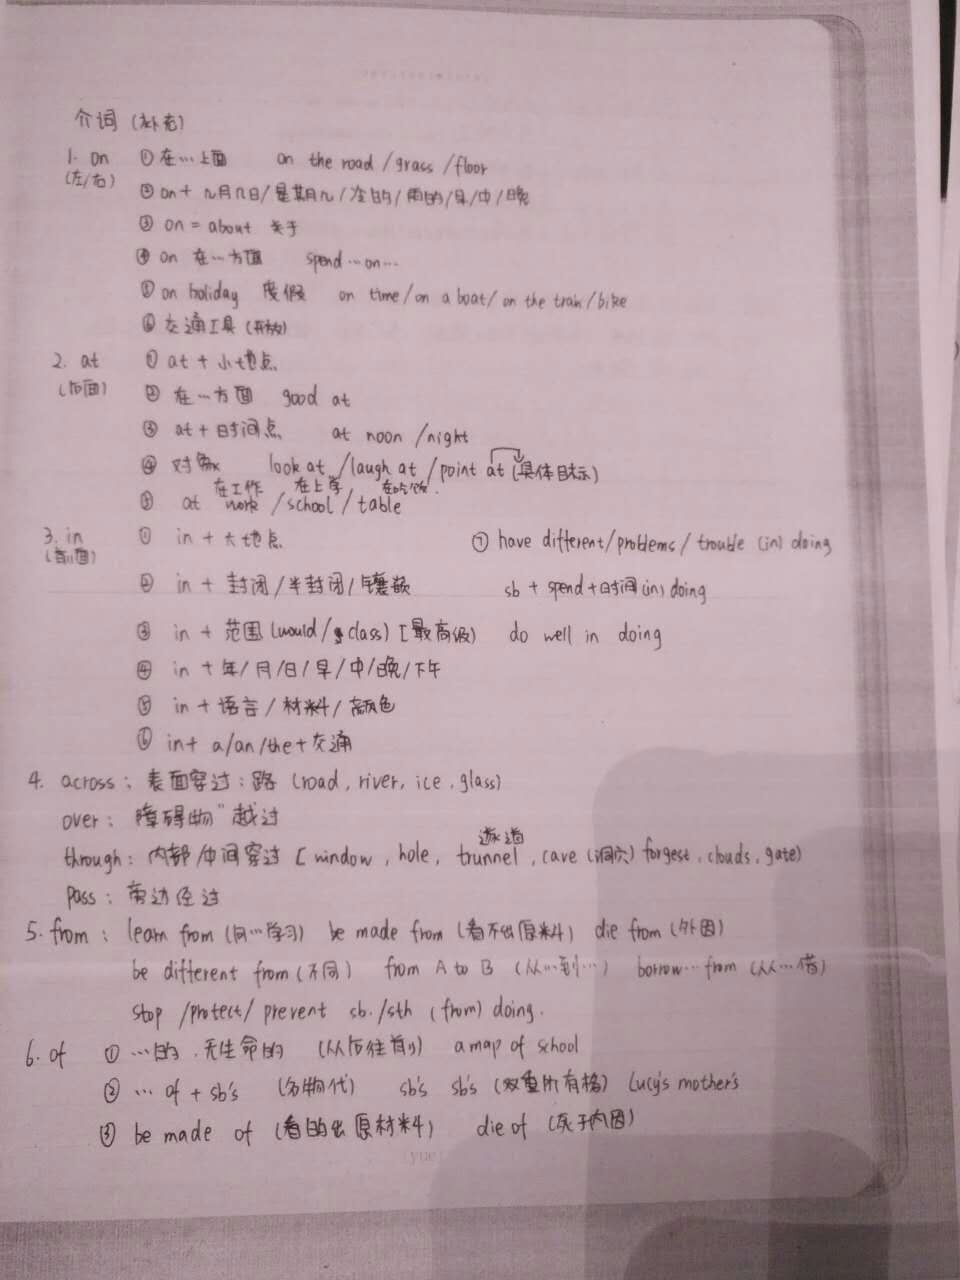 介词 (补充)
1. on ① 在…上面 on the road / grass / floor
(左/右)
② on + 几月几日 / 星期几 / 冷的 / 雨的 / 早 / 中 / 晚
③ on = about 关于
④ on 在…方面 spend … on …
⑤ on holiday 度假 on time / on a boat / on the train / bike
⑥ 交通工具 (开放)
2. at ① at + 小地点
(后面)
② 在…方面 good at
③ at + 时间点 at noon / night
④ 对 look at / laugh at / point at (具体目标)
在工作 在上学 在吃饭
⑤ at work / school / table
3. in ① in + 大地点 ⑦ have different / problems / trouble (in) doing
(前面)
② in + 封闭 / 半封闭 / 镶嵌 sb + spend + 时间 (in) doing
③ in + 范围 (would / class) [最高级) do well in doing
④ in + 年 / 月 / 日 / 早 / 中 / 晚 / 下午
⑤ in + 语言 / 材料 / 颜色
⑥ in + a/an/the + 交通
4. across : 表面穿过 : 路 (road, river, ice, glass)
over : 障碍物" 越过
遂道
through : 内部 / 中间穿过 [window, hole, trunnel, cave (洞穴) forgest, clouds, gate)
pass : 旁边经过
5. from : learn from (向…学习) be made from (看不出原料) die from (外因)
be different from (不同) from A to B (从…到…) borrow … from (从…借)
stop / protect / prevent sb. / sth (from) doing.
6. of ① …的 . 无生命的 (从后往前) a map of school
② … of + sb's (名物代) sb's sb's (双重所有格) Lucy's mother's
③ be made of (看的出原材料) die of (死于内因)
yue